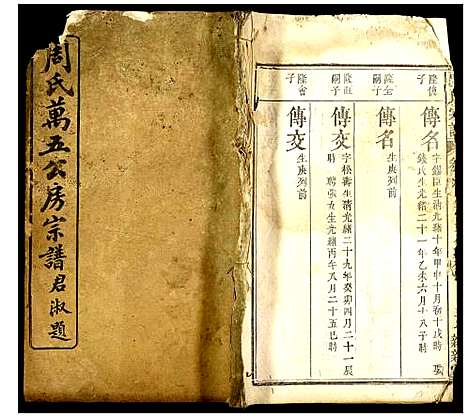 周氏萬五公房宗譜 君淑題
隆傅子
傳名
字錫臣生清光緒十年甲申十月初十戌時
錢氏生光緒二十一年乙未六月十八子時
隆金嗣子
傳名
生庚列前
隆誑嗣子
傳交
字松壽生清光緒二十九年癸卯四月二十一辰
時 聘張女生光緒丙午八月二十五巳時
隆會子
傳交
生庚列前